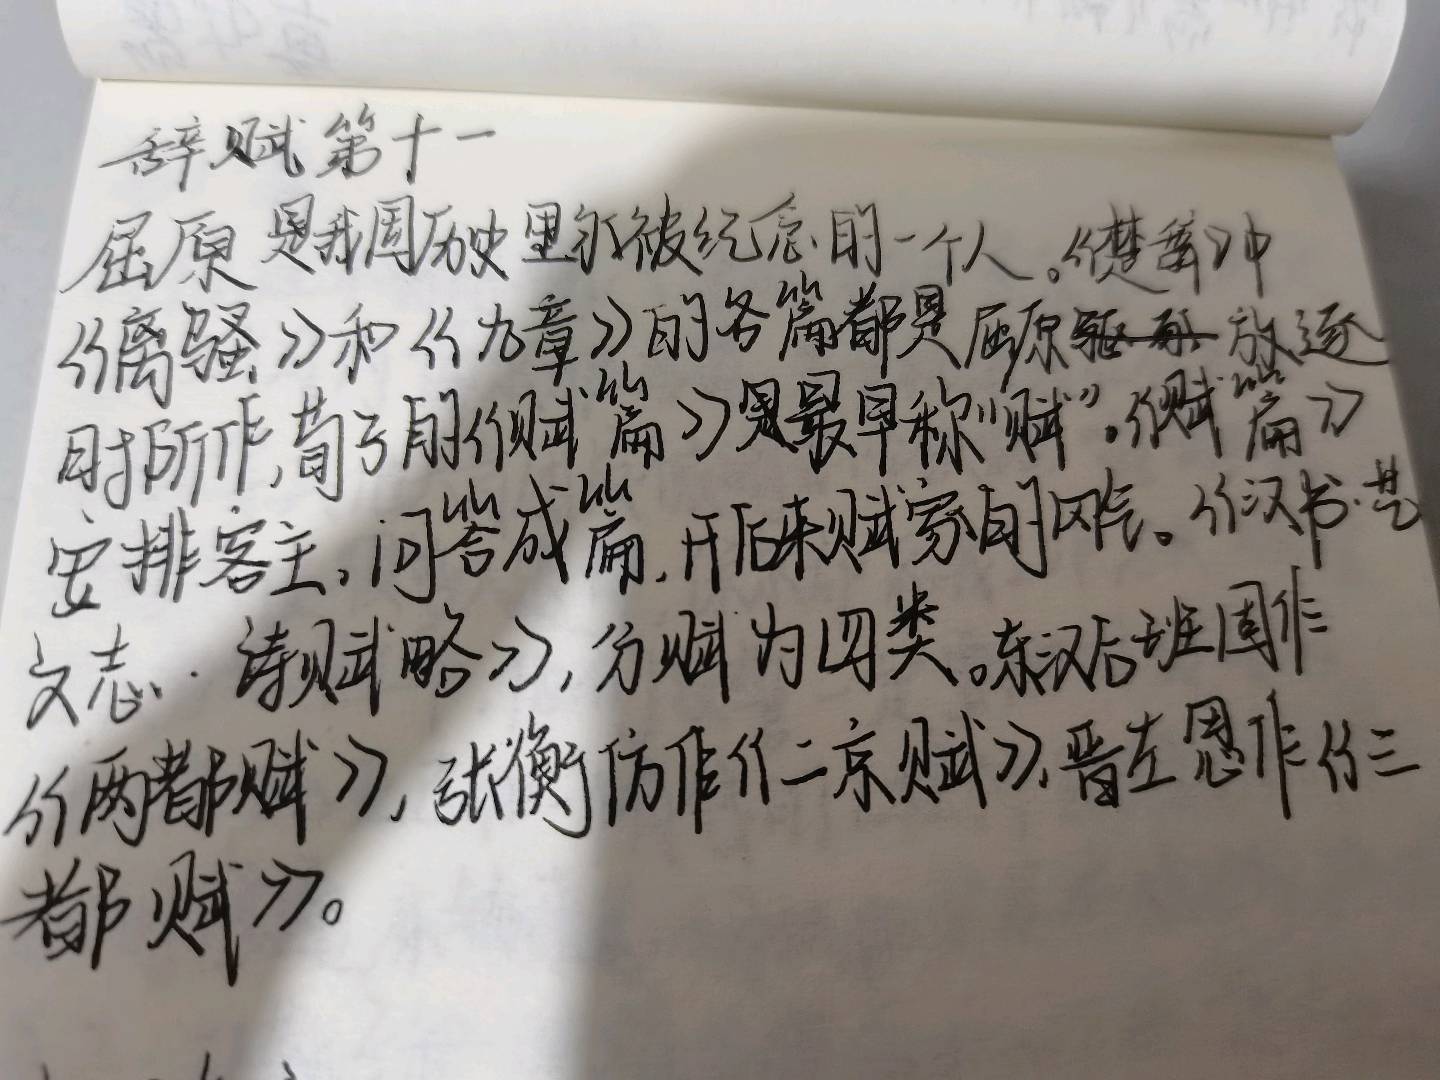 辞赋第十一
屈原是我国历史里永被纪念的一个人。《楚辞》中
《离骚》和《九章》的各篇都是屈原放逐
时所作，荀子的《赋篇》是最早称“赋”。《赋篇》
安排客主，问答成篇，开后来赋家的风气。《汉书·艺
文志·诗赋略》，分赋为四类。东汉后班固作
《两都赋》，张衡仿作《二京赋》，晋左思作《三
都赋》。